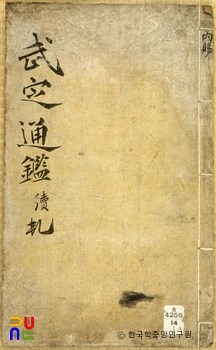 內賜
武定通鑑 續
4250
14
ⓒ 한국학중앙연구원